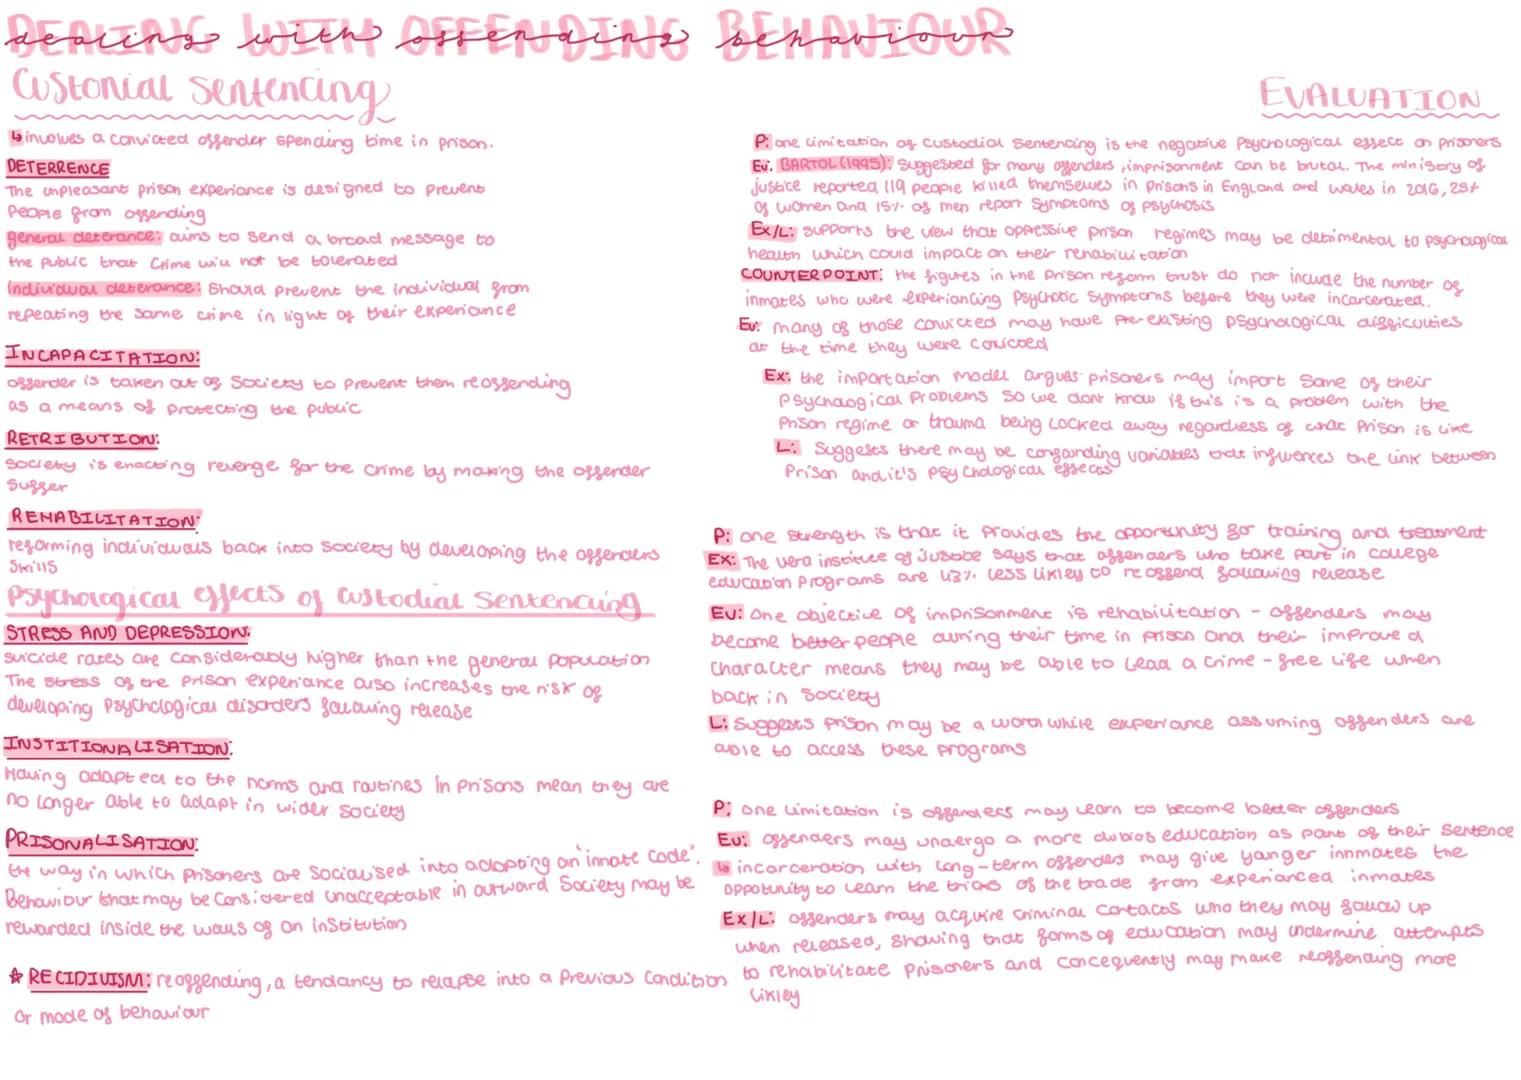 DEALING WITH OFFENDING BEHAVIOUR
dealing with offending behaviour
Custonial Sentencing
↳ involves a convicted offender spending time in prison.
DETERRENCE
The unpleasant prison experiance is designed to prevent
People from offending
general deterance: aims to send a broad message to
the public that Crime will not be tolerated
individual deterance: Should prevent the individual from
repeating the same crime in light of their experiance
INCAPACITATION:
offender is taken out of Society to Prevent them reoffending
as a means of protecting the public
RETRIBUTION:
society is enacting revenge for the crime by making the offender
suffer
REHABILITATION:
reforming individuals back into society by developing the offenders
Skills
Psychological effects of custodial sentencing
STRESS AND DEPRESSION:
suicide rates are considerably higher than the general population
The stress of the prison experiance also increases the risk of
developing Psychological disorders following release
INSTITIONALISATION:
Having adapted to the norms and routines in prisons mean they are
no longer able to adapt in wider society
PRISONALISATION:
the way in which prisoners are Socialised into adopting an 'inmate code'.
Behaviour that may be Considered unacceptable in outward Society may be
rewarded inside the walls of an institution
☆ RECIDIVISM: reoffending, a tendancy to relapse into a Previous Condition
or mode of behaviour
EVALUATION
P: one limitation of custodial Sentencing is the negative Psychological effect on prisoners
Ev: BARTOL (1995): Suggested for many offenders, imprisonment can be brutal. The ministry of
justice reported 119 people killed themselves in prisons in England and wales in 2016, 25%
of women and 15% of men report Symptoms of psychosis
Ex/L: supports the view that oppressive prison regimes may be detrimental to psychological
health which could impact on their rehabilitation
COUNTERPOINT: the figures in the Prison reform trust do not include the number of
inmates who were experiancing Psychotic Symptoms before they were incarcerated.
Ev: many of those convicted may have Pre-existing psychological difficulties
at the time they were convicted
Ex: the importation model argues prisoners may import Some of their
psychological Problems so we dont know if this is a problem with the
prison regime or trauma being Locked away regardless of what Prison is like
L: Suggests there may be confounding variables that influences the link between
Prison and it's psychological effects
P: one strength is that it Provides the opportunity for training and treatment
Ex: The vera institute of Justice says that offenders who take part in college
education Programs are 43% less likley to reoffend following release
Ev: One objective of imprisonment is rehabilitation - offenders may
become better people during their time in prison and their improved
Character means they may be able to Lead a Crime-free Life when
back in society
L: Suggests prison may be a worthwhite experiance assuming offenders are
able to access these programs
P: one Limitation is offenders may Learn to become better offenders
Ev: offenders may undergo a more dubios education as part of their Sentence
↳ incarceration with long-term offenders may give yanger inmates the
oppotunity to learn the tricks of the trade from experianced inmates
Ex/L: offenders may acquire criminal contacts who they may follow up
when released, Showing that forms of education may undermine attempts
to rehabilitate prisoners and concequently may make reoffending more
likley